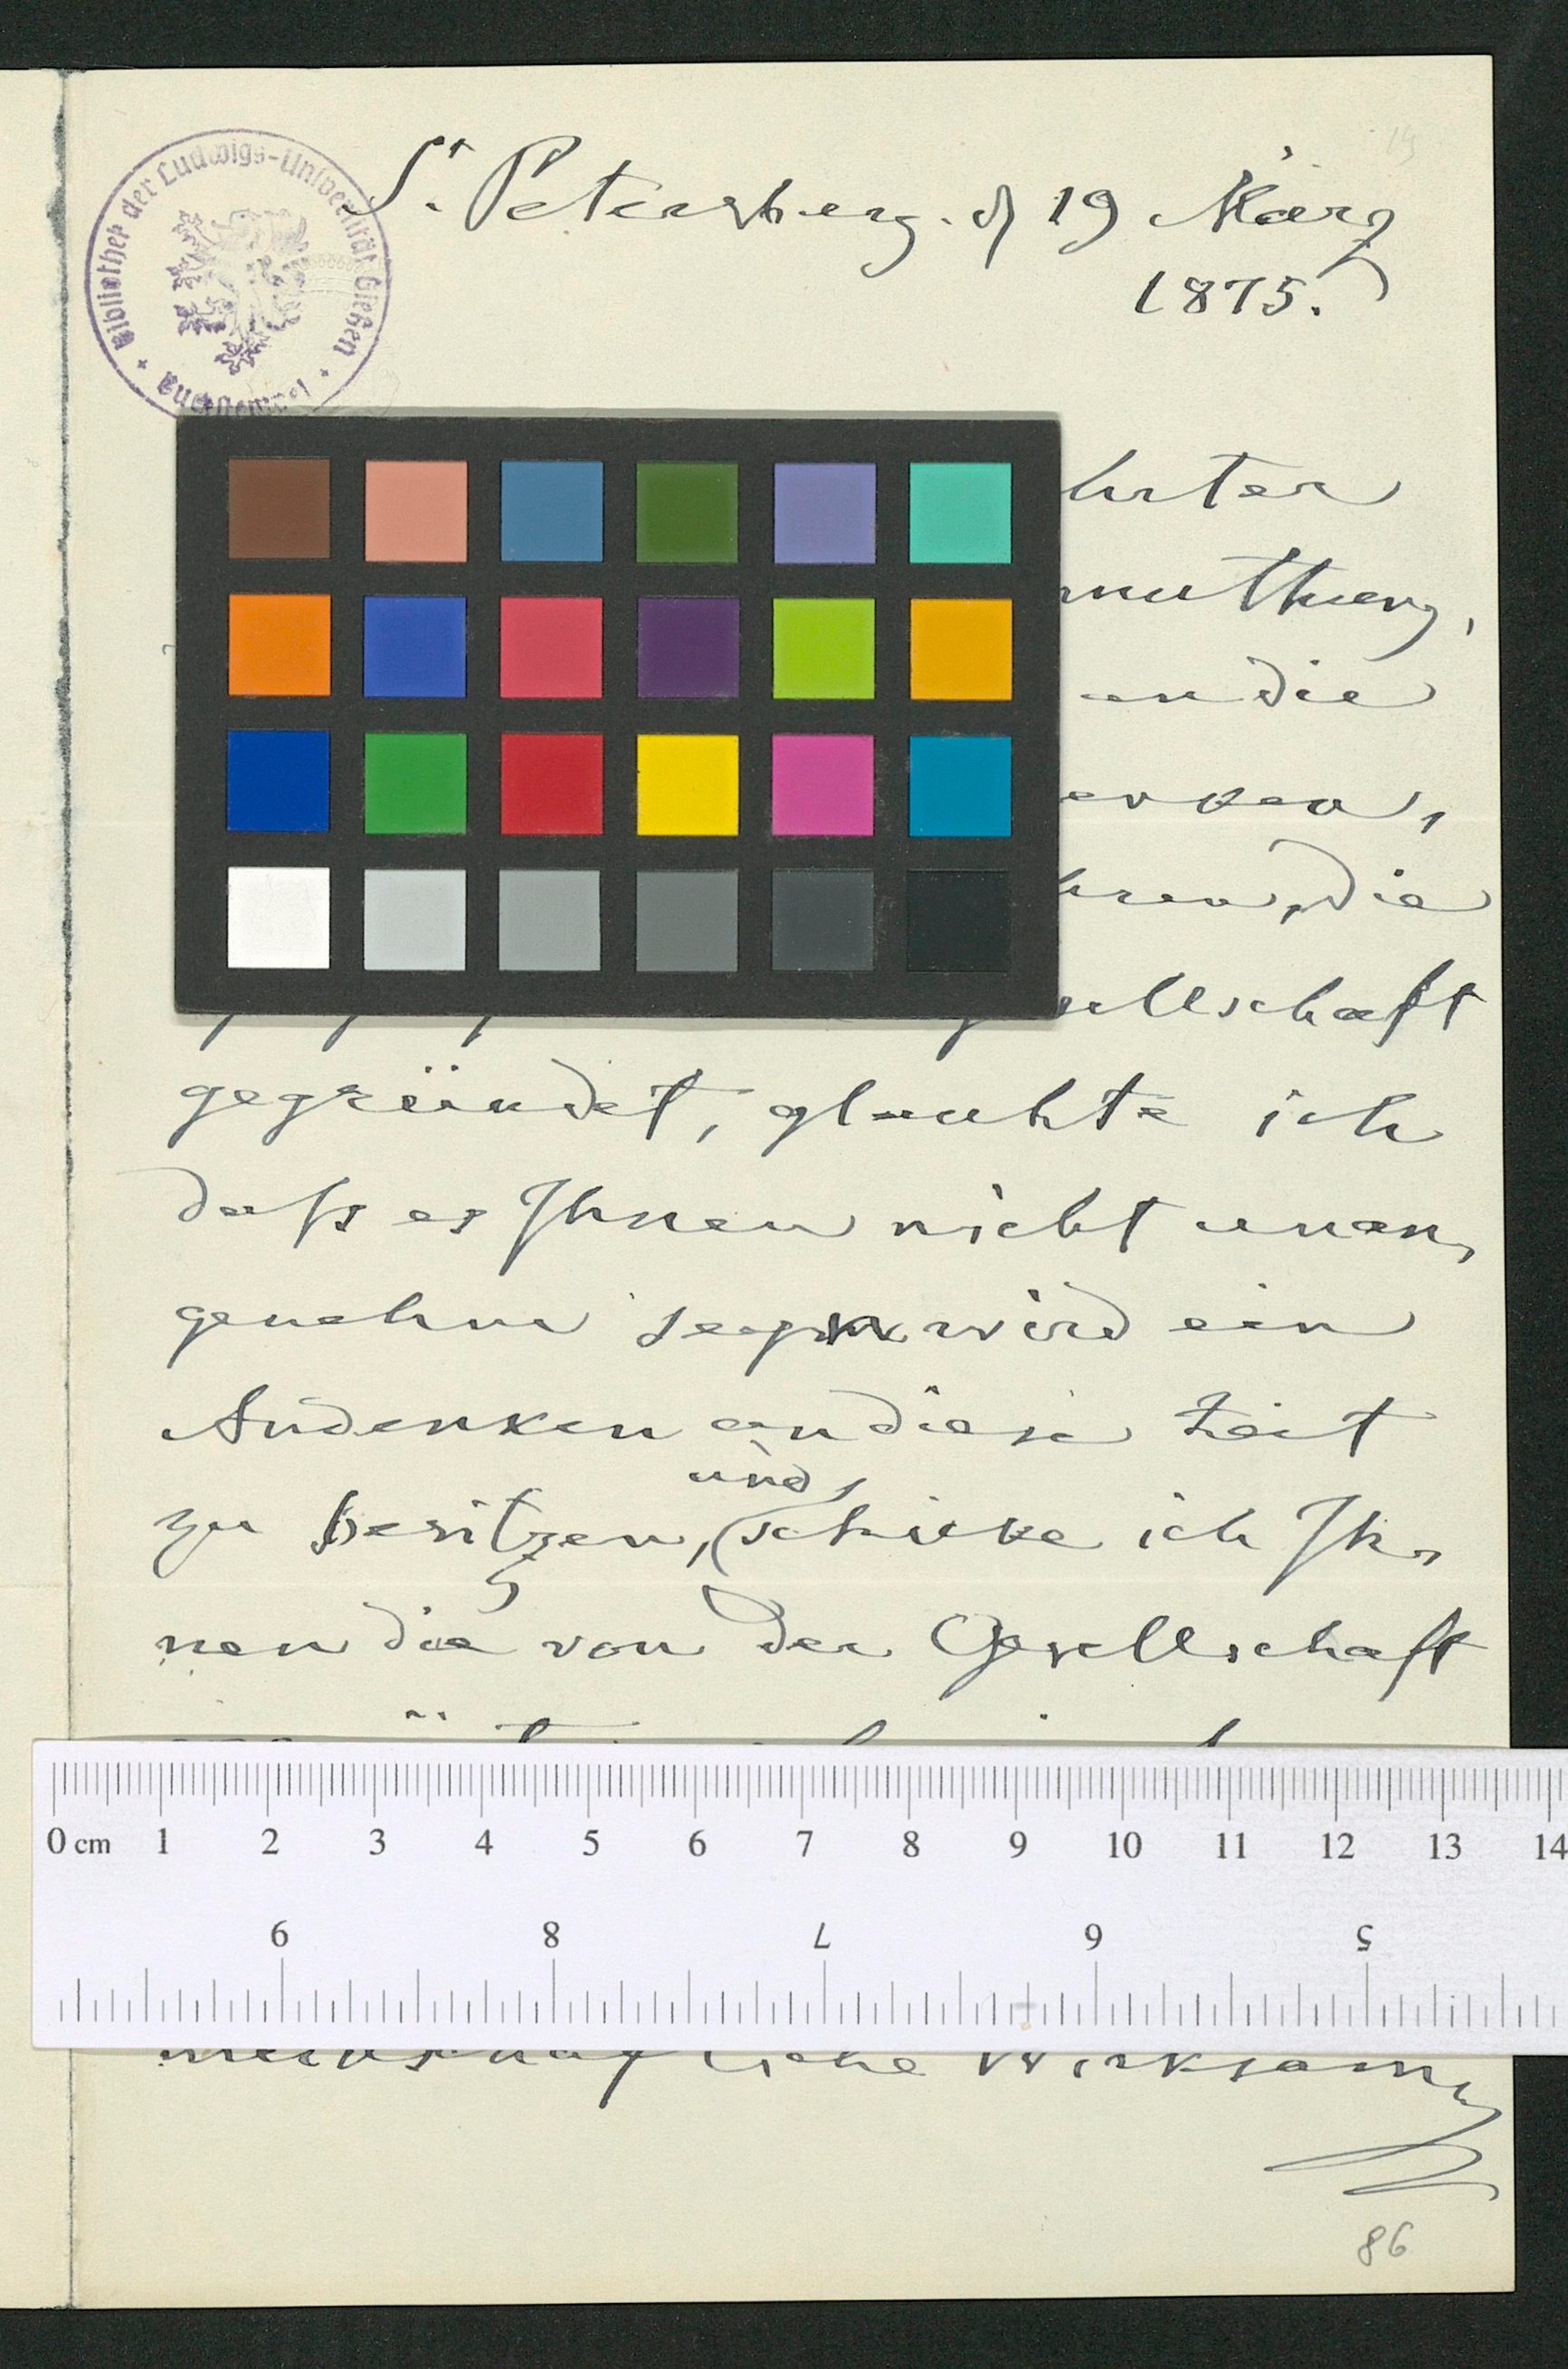 Bibliothek der Ludwigs-Universität Gießen
St. Petersburg. d 19 März
1875.
hrter
muthung,
an die
hren, die
sellschaft
gegründet, glaubte ich
daß es Ihnen nicht unan,
genehm seyn wird ein
Andenken an diese Zeit
und
zu besitzen, schicke ich Ih,
nen die von der Gesellschaft
0 cm 1 2 3 4 5 6 7 8 9 10 11 12 13 14
9 8 7 6 5
liche Wirksam
86